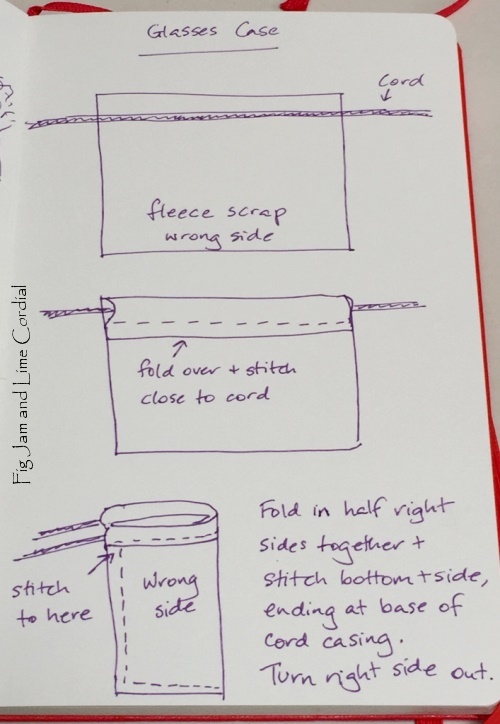 Glasses Case
Cord
fleece scrap
wrong side
fold over + stitch
close to cord
stitch
to here
Wrong
side
Fold in half right
sides together +
stitch bottom + side,
ending at base of
cord casing.
Turn right side out.
Fig Jam and Lime Cordial